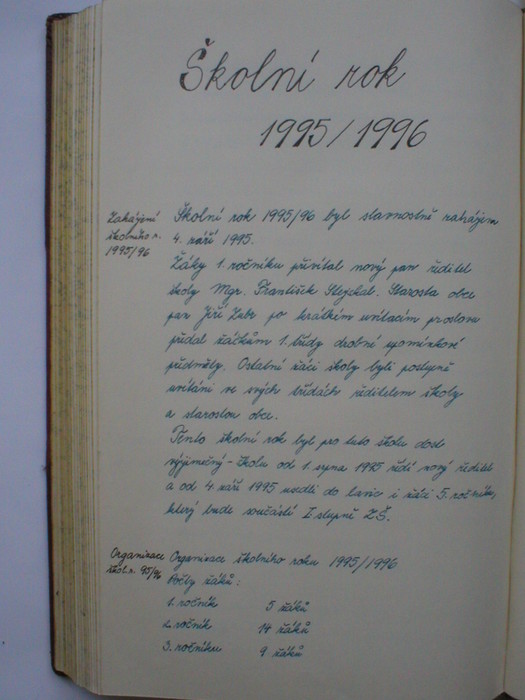 Školní rok
1995/1996
Zahájení
školního r.
1995/96
Školní rok 1995/96 byl slavnostně zahájen
4. září 1995.
Žáky 1. ročníku přivítal nový pan ředitel
školy Mgr. František Stejskal. Starosta obce
pan Jiří po krátkém uvítacím proslovu
předal žáčkům 1. třídy drobné upomínkové
předměty. Ostatní žáci školy byli postupně
uvítáni ve svých třídách ředitelem školy
a starostou obce.
Tento školní rok byl pro tuto školu dosti
výjimečný - školu od 1. srpna 1995 řídí nový ředitel
a od 4. září 1995 usedli do lavic i žáci 5. ročníku,
který bude součástí I. stupně ZŠ.
Organizace
škol. r. 95/96
Organizace školního roku 1995/1996
Počty žáků:
1. ročník 5 žáků
2. ročník 14 žáků
3. ročníku 9 žáků